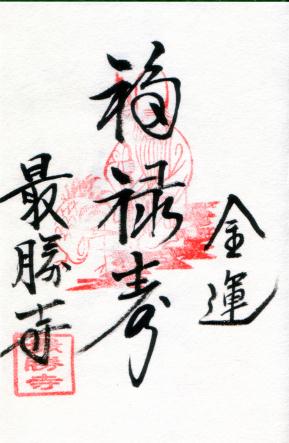 金運
福禄寿
最勝寺
最勝寺